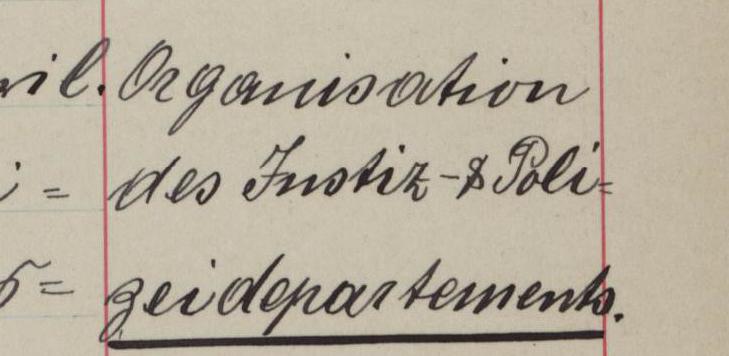 Organisation
des Justiz- & Poli=
zeidepartements.